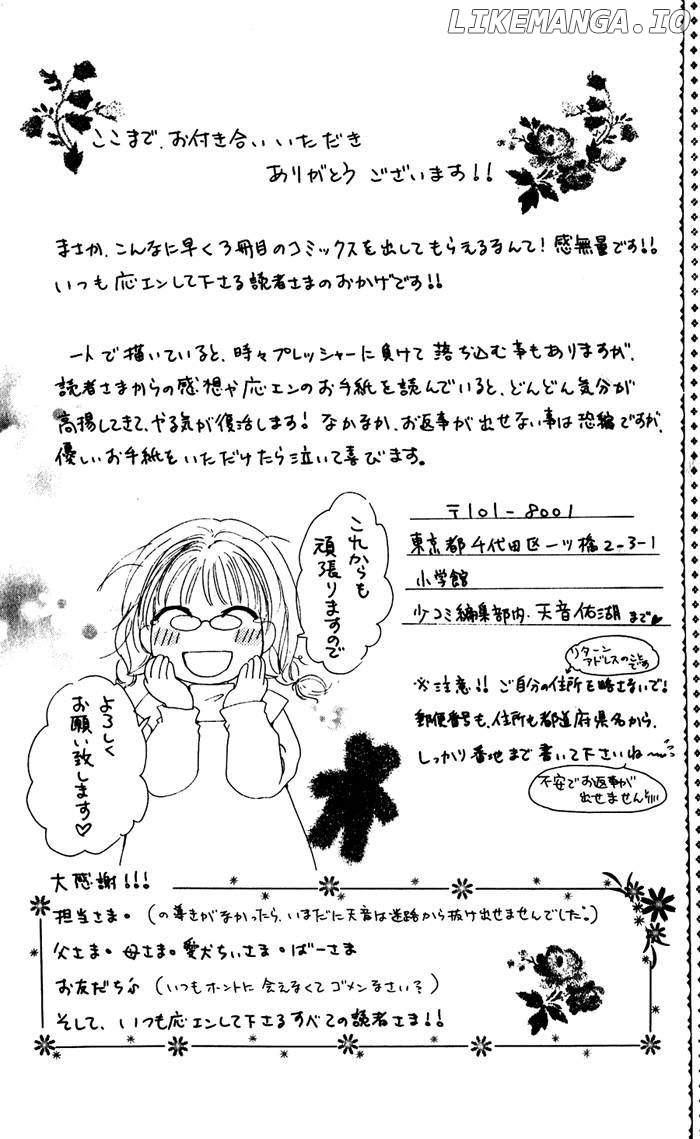 LIKEMANGA.IO
ここまで、お付き合いいただき
ありがとうございます!!
まさか、こんなに早く3冊目のコミックスを出してもらえるなんて!感無量です!!
いつも応エンして下さる読者さまのおかげです!!
一人で描いていると、時々プレッシャーに負けて落ち込む事もありますが、
読者さまからの感想や応エンのお手紙を読んでいると、どんどん気分が
高揚してきて、やる気が復活します!なかなか、お返事が出せない事は恐縮ですが、
優しいお手紙をいただけたら泣いて喜びます。
これからも
頑張りますので
よろしく
お願い致します♡
〒101-8001
東京都千代田区一ツ橋2-3-1
小学館
少コミ編集部内・天音佑湖まで♥
リターン
アドレスのこと
です
※注意!!ご自分の住所を略さないで!
郵便番号も、住所も都道府県名から、
しっかり番地まで書いて下さいね〜!!
不安でお返事が
出せません!!!!
大感謝!!!
担当さま。(の導きがなかったら、いまだに天音は迷路から抜け出せませんでした。)
父さま。母さま。愛犬ちぃさま。ばーさま
お友だち♪(いつもホントに会えなくてゴメンなさい?)
そして、いつも応エンして下さるすべての読者さま!!